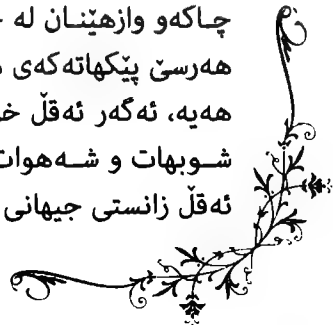 چاکەو وازهێنان لە
هەرسێ پێکهاتەکەی
هەیە، ئەگەر ئەقڵ
شوبهات و شەهوات
ئەقڵ زانستی جیهانی